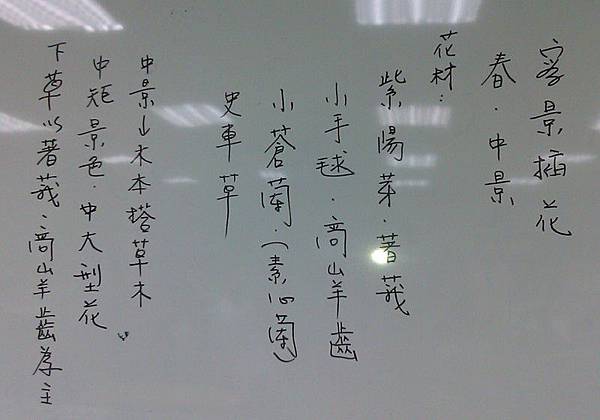 寫景插花
春．中景
花材：
紫陽芽．蓍莪
小手毬．高山羊齒
小蒼蘭．(素心蘭)
史車草
中景以木本搭草木
中矩景色．中大型花
下草以著莪、高山羊齒為主